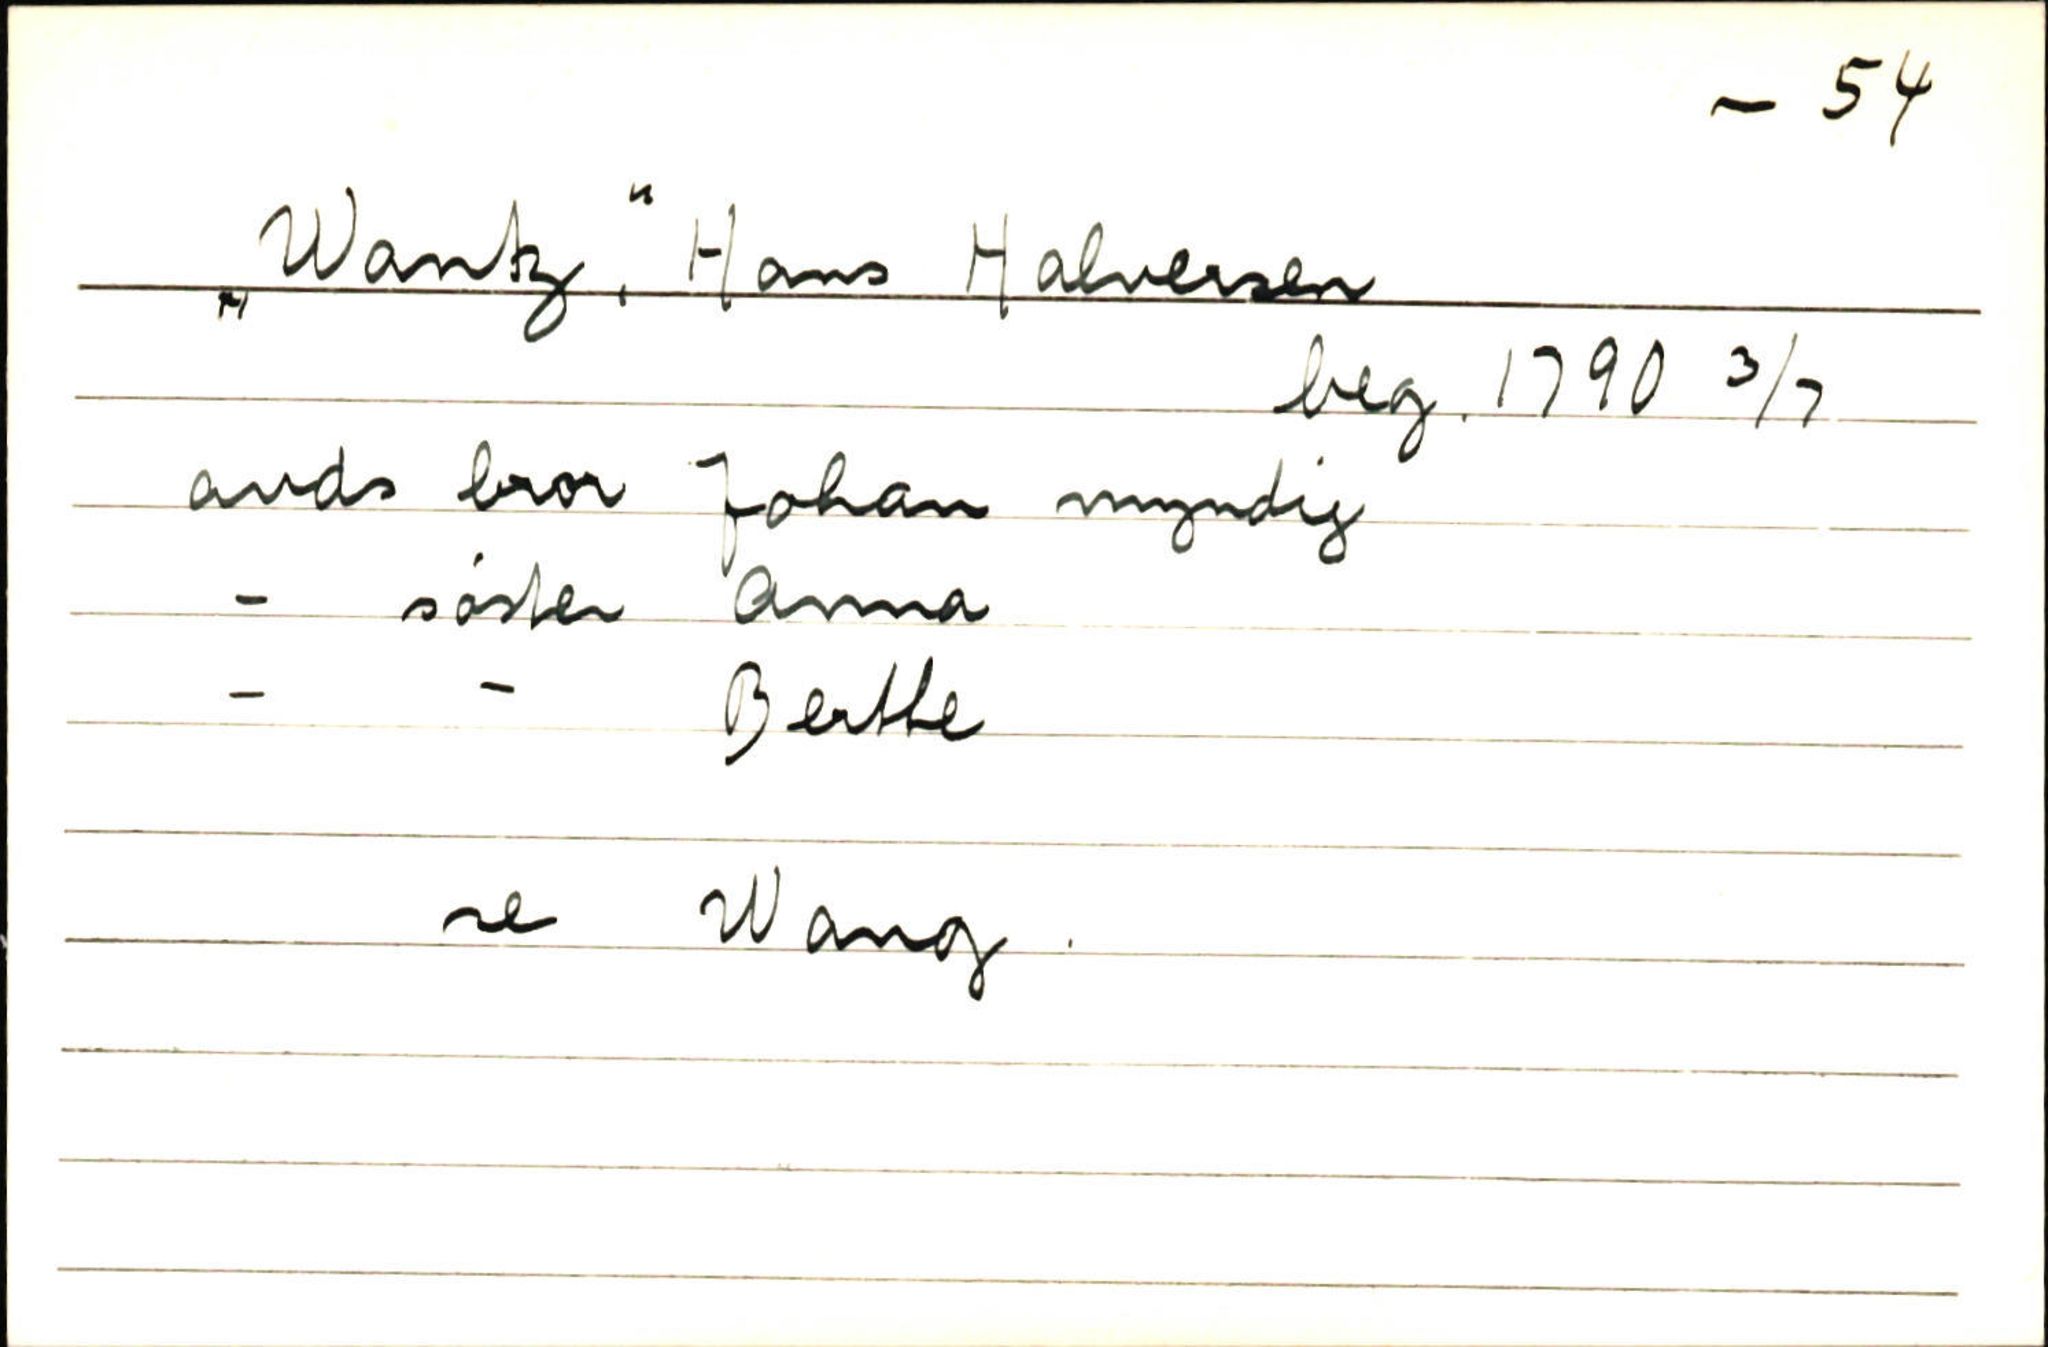 - 54
„Wantz," Hans Halversen
beg. 1790 3/7
avds bror Johan myndig
- söster Anna
- - Berthe
se Wang.